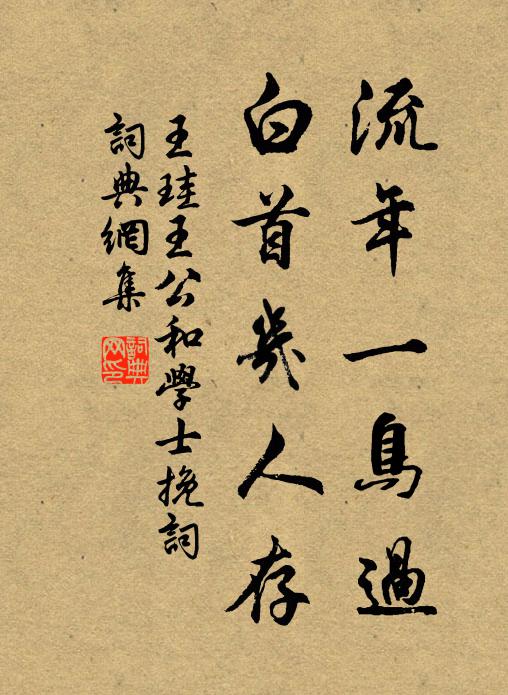 流年一鳥過
白首幾人存
王珪王公和學士挽詞
詞典網集
詞典网印